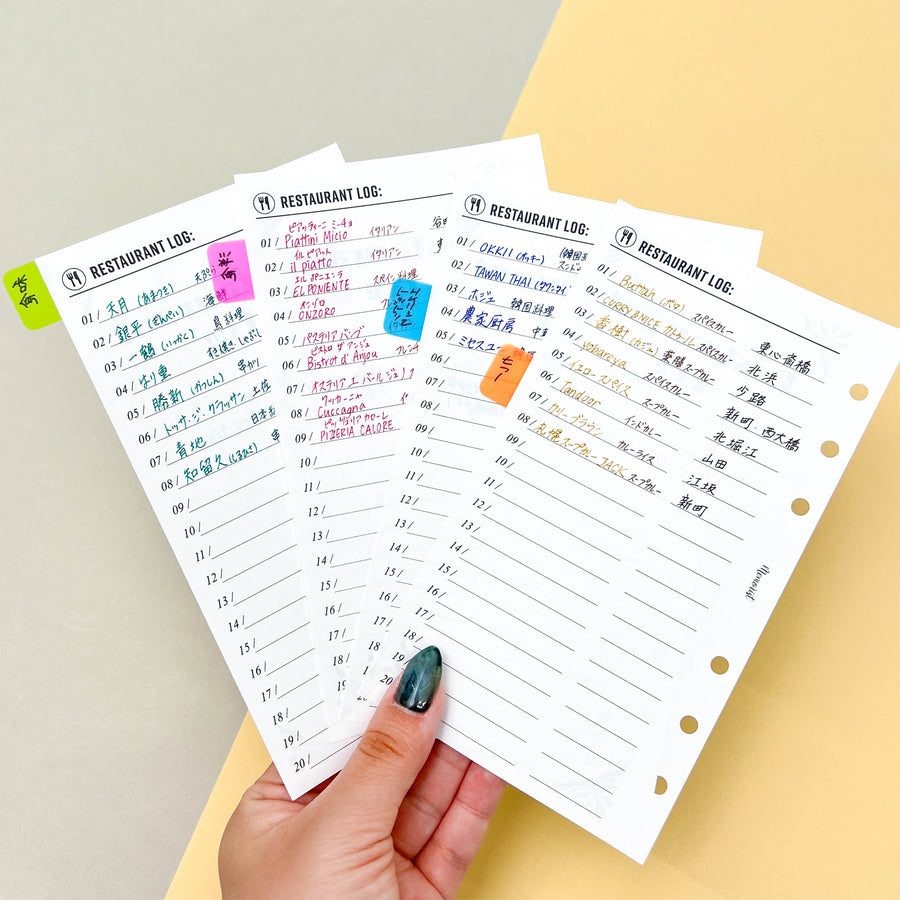 RESTAURANT LOG:
01 / 天月 (あまつき)
02 / 銀平 (ぎんぺい) 海鮮
03 / 一鶴 (いっかく) 鳥料理
04 / はり重 すき焼き・しゃぶしゃぶ
05 / 勝新 (かつしん) 串かつ
06 / トッサ・ジ・クラッサン 土佐
07 / 青地 日本酒
08 / 知留久 (しるびさ)
09 /
10 /
11 /
12 /
13 /
14 /
15 /
16 /
17 /
18 /
19 /
20 /
RESTAURANT LOG:
ピアッティーニ ミーチョ
01 / Piattini Micio イタリアン
イル ピアット
02 / il piatto イタリアン
エル ポニエンテ
03 / EL PONIENTE スペイン料理
オンゾロ
04 / ONZORO
05 / パステリア バンブ
ビストロ ダンジュ
06 / Bistrot d'Anjou フレンチ
07 / オステリア ユ バール ジ
クッカーニャ
08 / Cuccagna
ピッツェリア カローレ
09 / PIZERIA CALORE
10 /
11 /
12 /
13 /
14 /
15 /
16 /
17 /
18 /
RESTAURANT LOG:
01 / OKKII (オッキー) (韓国
02 / TAWAN THAI (タワンタイ
03 / ホジェ 韓国料理
04 / 農家厨房 中
05 / ミセスユー
06 /
07 /
08 /
09 /
10 /
11 /
12 /
13 /
14 /
15 /
16 /
17 /
18 /
19 /
20
カレー
RESTAURANT LOG:
01 / Buttah (ボタ) スパイスカレー 東心斎橋
02 / CURRY&NICE カトゥール スパイスカレー 北浜
03 / 香樹 (カジュ) 薬膳スパイスカレー 少路
04 / yobareya スパイスカレー 新町、西大橋
05 / イエロースパイス スープカレー 北堀江
06 / Tandoor インドカレー 山田
07 / カリーブラウン カレーライス 江坂
08 / 札幌スープカレー JACK スープカレー 新町
09 /
10 /
11 /
12 /
13 /
14 /
15 /
16 /
17 /
18 /
19 /